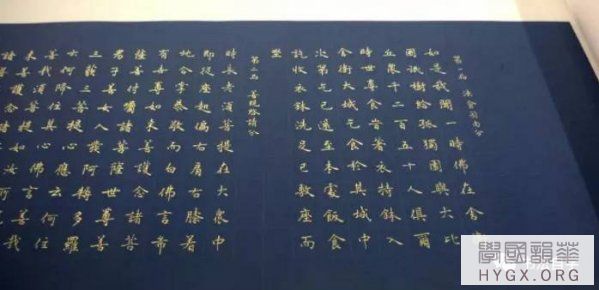 第一品 法會因由分
如是我聞一時佛在舍衛
國祇樹給孤獨園與大比
丘眾千二百五十人俱爾
時世尊食時著衣持鉢入
舍衛大城乞食於其城中
次第乞已還至本處飯食
訖收衣鉢洗足已敷座而
坐
第二品 善現啟請分
時長老須菩提在大眾中
即從座起偏袒右肩右膝著
地合掌恭敬而白佛言希
有世尊如來善護念諸菩
薩善付囑諸菩薩世尊善
男子善女人發阿耨多羅
三藐三菩提心應云何住
學國韻華
HYGX.ORG